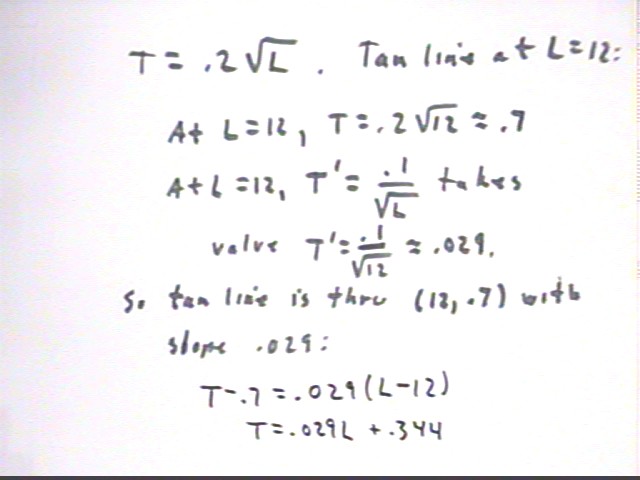 T = .2√L . Tan line at L=12:
At L=12, T=.2√12 ≈ .7
At L=12, T' = .1/√L takes
value T' = .1/√12 ≈ .029.
So tan line is thru (12, .7) with
slope .029:
T-.7 = .029(L-12)
T=.029L + .344